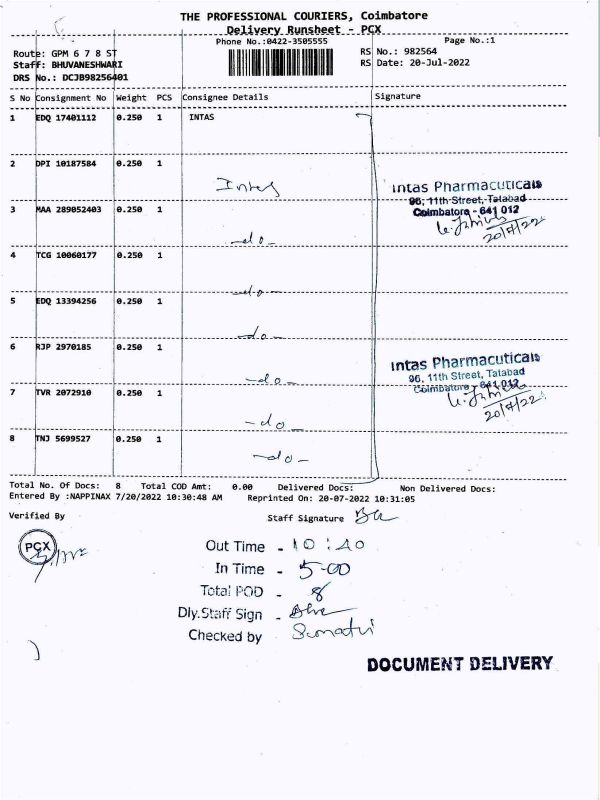 THE PROFESSIONAL COURIERS, Coimbatore
Delivery Runsheet - PCX
Phone No.:0422-3505555 Page No.:1
Route: GPM 6 7 8 ST RS No.: 982564
Staff: BHUVANESHWARI RS Date: 20-Jul-2022
DRS No.: DCJB98256401
S No Consignment No Weight PCS Consignee Details Signature
1 EDQ 17401112 0.250 1 INTAS
2 DPI 10187584 0.250 1
Intas
Intas Pharmacuticals
96, 11th Street, Tatabad
Coimbatore - 641 012
20/7/22
3 MAA 289052403 0.250 1
-do-
4 TCG 10060177 0.250 1
-do-
5 EDQ 13394256 0.250 1
-do-
6 RJP 2970185 0.250 1
-do-
Intas Pharmacuticals
96, 11th Street, Tatabad
Coimbatore - 641 012
20/7/22
7 TVR 2072910 0.250 1
-do-
8 TNJ 5699527 0.250 1
-do-
Total No. Of Docs: 8 Total COD Amt: 0.00 Delivered Docs: Non Delivered Docs:
Entered By :NAPPINAX 7/20/2022 10:30:48 AM Reprinted On: 20-07-2022 10:31:05
Verified By Staff Signature
PCX
Out Time - 10:40
In Time - 5-00
Total POD - 8
Dly.Staff Sign -
Checked by Sumathi
DOCUMENT DELIVERY